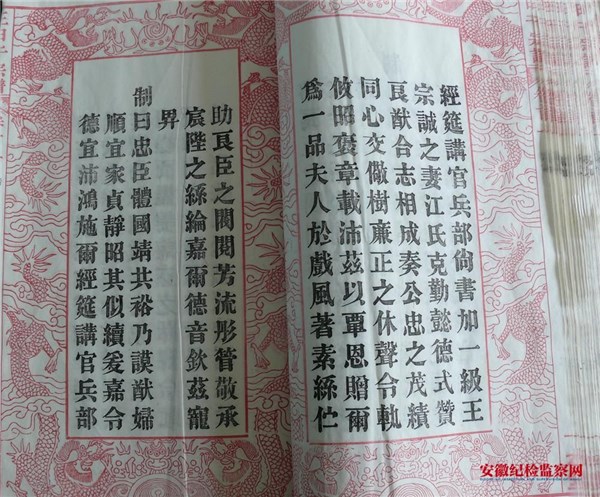 經筵講官兵部尙書加一級王
宗誠之妻江氏克勤懿德式贊
良猷合志相成奏公忠之茂績
同心交儆樹亷正之休聲令軌
攸昭褒章載沛茲以覃恩贈爾
爲一品夫人於戲風著素絲伫
助良臣之閥閱芳流彤管敬承
宸陛之絲綸嘉爾德音欽茲寵
昇
制曰忠臣體國靖共裕乃謨猷婦
順宜家貞靜昭其似續爰嘉令
德宜沛鴻施爾經筵講官兵部
安徽纪检监察网